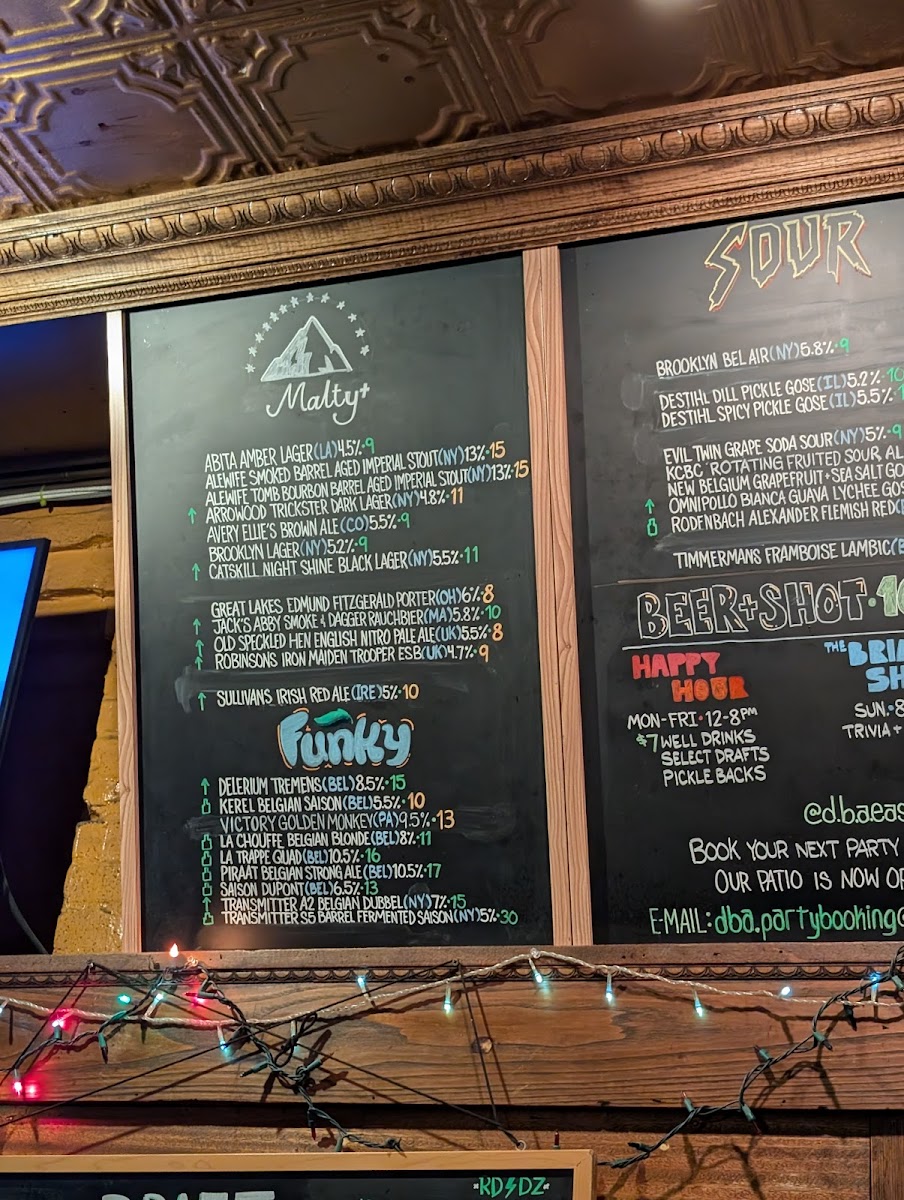 Malty+
ABITA AMBER LAGER (LA) 4.5% • 9
ALEWIFE SMOKED BARREL AGED IMPERIAL STOUT (NY) 13% • 15
ALEWIFE TOMB BOURBON BARREL AGED IMPERIAL STOUT (NY) 13% 15
↑ ARROWOOD TRICKSTER DARK LAGER (NY) 4.8% • 11
AVERY ELLIE'S BROWN ALE (CO) 5.5% • 9
BROOKLYN LAGER (NY) 5.2% • 9
↑ CATSKILL NIGHT SHINE BLACK LAGER (NY) 5.5% • 11
GREAT LAKES EDMUND FITZGERALD PORTER (OH) 6% • 8
↑ JACK'S ABBY SMOKE & DAGGER RAUCHBIER (MA) 5.8% • 10
↑ OLD SPECKLED HEN ENGLISH NITRO PALE ALE (UK) 5.5% • 8
↑ ROBINSONS IRON MAIDEN TROOPER ESB (UK) 4.7% • 9
↑ SULLIVANS IRISH RED ALE (IRE) 5% • 10
Funky
↑ DELERIUM TREMENS (BEL) 8.5% • 15
KEREL BELGIAN SAISON (BEL) 5.5% • 10
VICTORY GOLDEN MONKEY (PA) 9.5% • 13
LA CHOUFFE BELGIAN BLONDE (BEL) 8% • 11
LA TRAPPE QUAD (BEL) 10.5% • 16
PIRAAT BELGIAN STRONG ALE (BEL) 10.5% • 17
SAISON DUPONT (BEL) 6.5% • 13
↑ TRANSMITTER A2 BELGIAN DUBBEL (NY) 7% • 15
TRANSMITTER S5 BARREL FERMENTED SAISON (NY) 5% • 30
SOUR
BROOKLYN BEL AIR (NY) 5.8% • 9
DESTIHL DILL PICKLE GOSE (IL) 5.2% • 10
DESTIHL SPICY PICKLE GOSE (IL) 5.5% •
EVIL TWIN GRAPE SODA SOUR (NY) 5% • 9
KCBC "ROTATING FRUITED SOUR AL
NEW BELGIUM GRAPEFRUIT + SEA SALT GO
↑ OMNIPOLLO BIANCA GUAVA LYCHEE GOS
RODENBACH ALEXANDER FLEMISH RED (
TIMMERMANS FRAMBOISE LAMBIC (B
BEER + SHOT • 10
HAPPY
HOUR
MON-FRI • 12-8PM
$7 WELL DRINKS
SELECT DRAFTS
PICKLE BACKS
THE BRIA
SH
SUN. • 8
TRIVIA +
@d.b.a.eas
BOOK YOUR NEXT PARTY
OUR PATIO IS NOW OP
E-MAIL: dba.partybooking@
*RDSDZ*